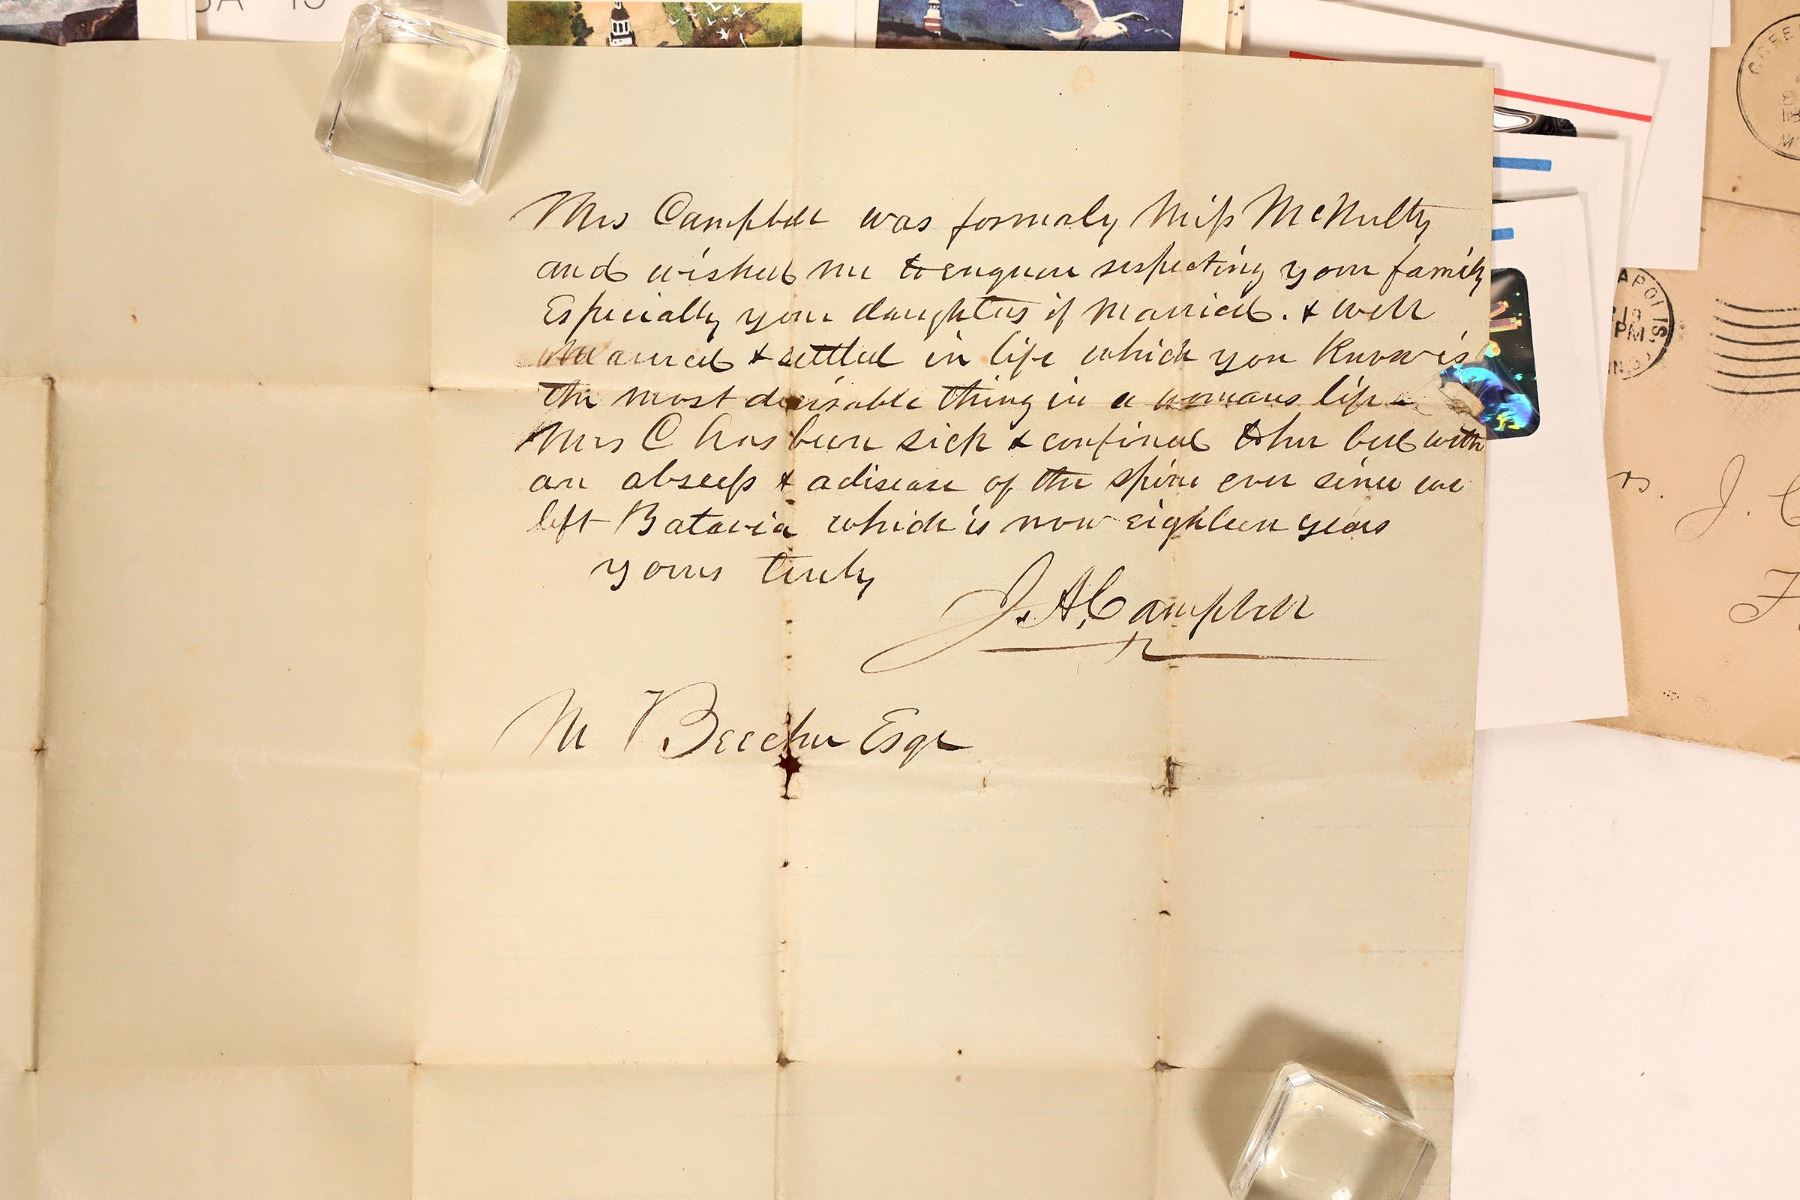 SA 15
Mrs Campbell was formaly Miss McNulty
and wished me to enquire respecting your family
Especially your daughters if Married. & well
Mearried & settled in life which you Know is
the most desirable thing in a womans life
Mrs C has been sick & confined to her bed with
an absess & a disease of the spine ever since we
left Batavia which is now eighteen years
yours truly
J. A. Campbell
M Beecher Esqr
APOLIS
PM
J. C